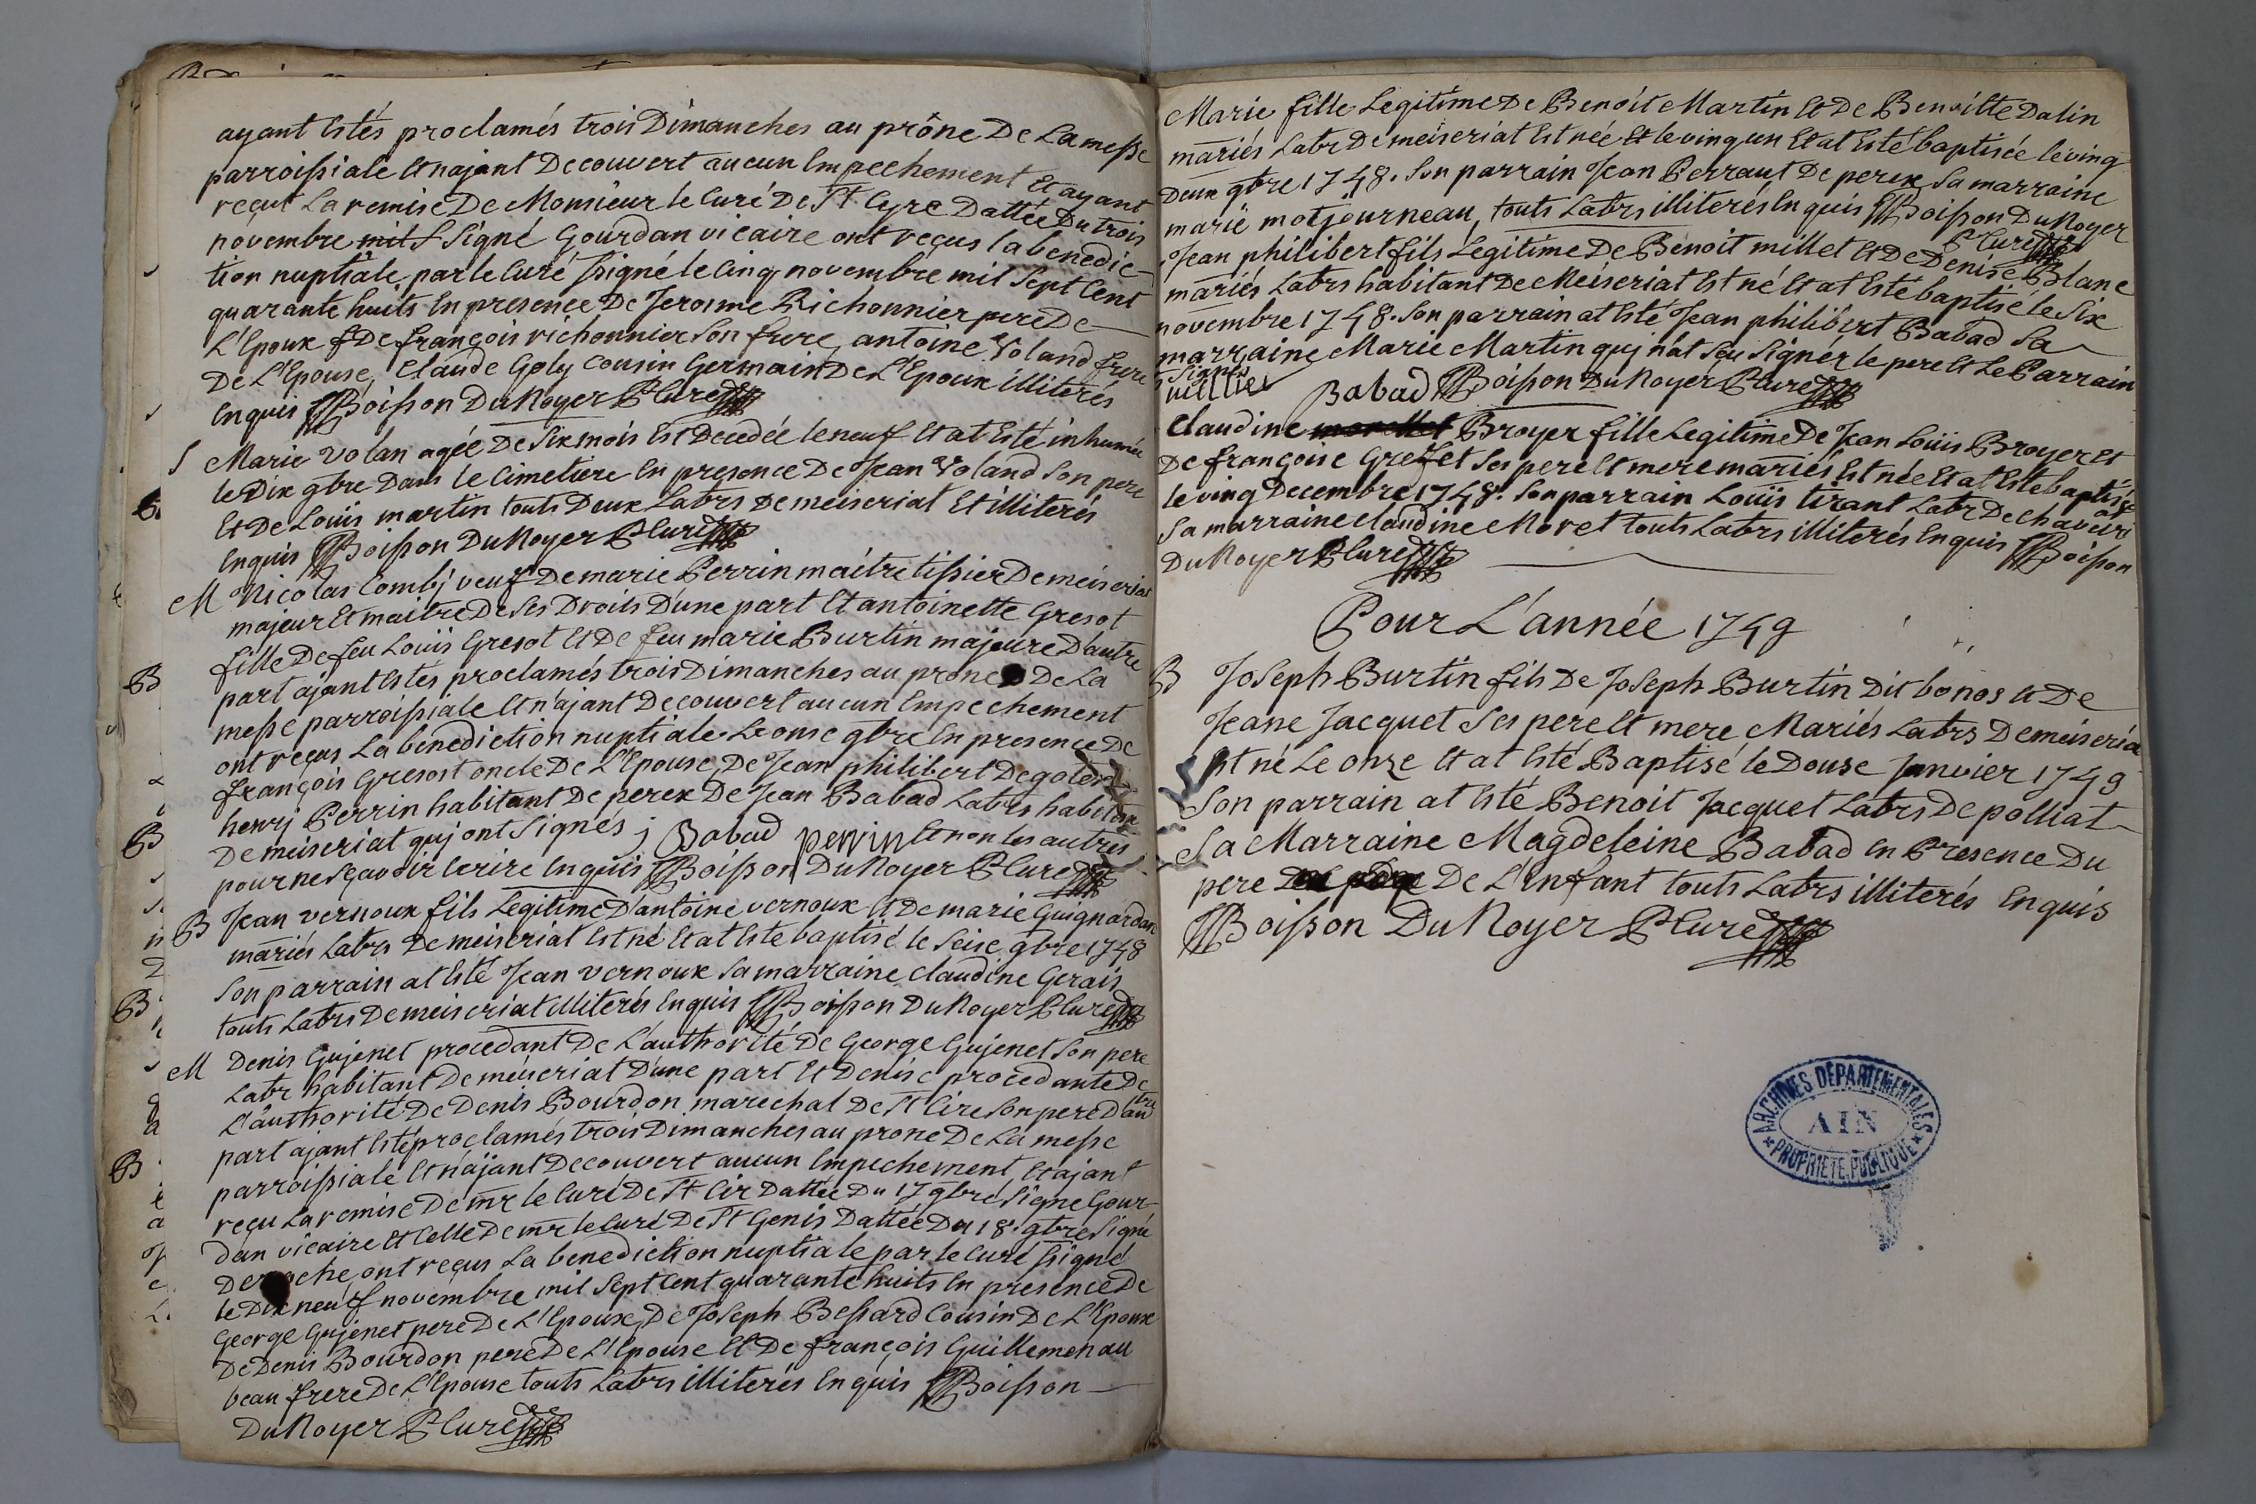 ayant Estés proclamés trois Dimanches au prône De La messe
parroissiale Et najant Decouvert aucun Empechement Et ayant
reçut La remise De Monsieur le Curé De St Cyre Dattée Du trois
novembre Signé Gourdan vicaire ont reçus la benedic-
tion nuptiale par le Curé ssigné le Cinq novembre mil Sept Cent
quarante huits En presence De Jerosme Richonnier pere De
L'Epoux & De françois richonnier Son frere, antoine Voland frere
De L'Epouse, Claude Goly Cousin Germain De L'Epoux illiterés
Enquis Boisson Du Noyer P Curé
S Marie Volan agée De Six mois Est Decedée le neuf Et at Esté inhumée
le Dix gbre Dans le Cimetiere En presence De Jean Voland Son pere
Et De Louïs martin touts Deux Labrs De meiseriat Et illiterés
Enquis Boisson Du Noyer P Curé
M Nicolas Combj veuf De marie Perrin maître tissier De meiseriat
majeur Et maitre De Ses Droits D'une part Et antoinette Gresot
fille De feu Louïs Gresot Et De feu marie Burtin majeure D'autre
part ajant Estés proclamés trois Dimanches au prone De La
messe parroissiale Et n'ajant Decouvert aucun Empechement
ont reçus La benediction nuptiale Le onse gbre En presence De
françois Gresost oncle De L'Epouse, De Jean philibert Degoles
henrj Perrin habitant De perex De Jean Babad Labrs habitan
De meiseriat quj ont Signés ; Babad perrin Et non les autres
pour ne Sçavoir Ecrire Enquis Boisson Du Noyer P Curé
B Jean vernoux fils Legitime D'antoine vernoux Et De marie Guignardan
mariés Labrs De meiseriat Est né Et at Esté baptisé le Seise gbre 1748
Son parrain at Esté Jean vernoux Sa marraine Claudine Gerais
touts Labrs De meiseriat illiterés Enquis Boisson Du Noyer P Curé
M Denis Gujenet procedant De L'authorité De George Gujenet Son pere
Labr habitant De meiseriat D'une part Et Denise procedante De
L'authorité De Denis Bourdon marechal De St Cire Son pere D'autre
part ajant Esté proclamés trois Dimanches au prone De La messe
parroissiale Et n'ajant Decouvert aucun Empechement, Et ajant
reçu La remise De mr le Curé De St Cir Dattée Du 17 gbre Signé Gour-
dan vicaire Et Celle De mr le Curé De St Genis Dattée Du 18. gbre Signé
ont reçus La benediction nuptiale par le Curé ssigné
le Dix neuf novembre mil Sept Cent quarante huits En presence De
George Gujenet pere De L'Epoux, De Joseph Bessard Cousin De L'Epoux
De Denis Bourdon pere De L'Epouse Et De françois Guillemenau
beau frere De L'Epouse touts Labrs illiterés Enquis Boisson
Du Noyer P Curé
Marie fille Legitime De Benoit Martin Et De Benoitte Dalin
mariés Labr De meiseriat Est née Et le vingun Et at Esté baptisée le ving
Deux gbre 1748. Son parrain Jean Perraut De perex Sa marraine
marie motjourneau, touts Labrs illiterés Enquis Boisson Du Noyer
P Curé
Jean philibert fils Legitime De Benoit millet Et De Denise Blanc
mariés Labrs habitant De Meiseriat Est né Et at Esté baptisé le Six
novembre 1748. Son parrain at Esté Jean philibert Babad Sa
marraine Marie Martin quj n'at Sçu Signér le pere Et Le Parrain
Signés
Babad Boisson Du Noyer P Curé
Claudine Broyer fille Legitime De Jean Louïs Broyer Et
De françoise Grefet Ses pere Et mere mariés Est née Et at Esté baptisée
le ving Decembre 1748. Son parrain Louïs tirant Labr De Chaveiria
Sa marraine Claudine Moret touts Labrs illiterés Enquis Boisson
Du Noyer P Curé
Pour L'année 1749
B Joseph Burtin fils De Joseph Burtin Dit bonos Et De
Jeane Jacquet Ses pere Et mere Mariés Labrs De meiseria
Est né Le onze Et at Esté Baptisé le Douse Janvier 1749
Son parrain at Esté Benoit Jacquet Labrs De polliat
Sa Marraine Magdeleine Babad En Presence Du
pere De L'Enfant touts Labrs illiterés Enquis
Boisson Du Noyer P Curé
ARCHIVES DÉPARTEMENTALES
AIN
PROPRIETE PUBLIQUE